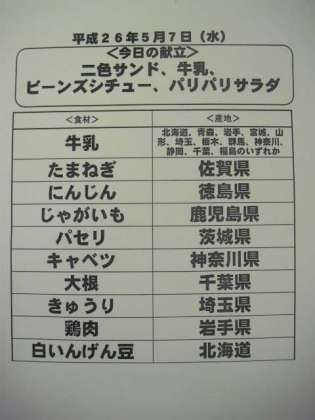 平成26年5月7日（水）
＜今日の献立＞
二色サンド、牛乳、
ビーンズシチュー、パリパリサラダ
＜食材＞ ＜産地＞
牛乳 北海道、青森、岩手、宮城、山
形、埼玉、栃木、群馬、神奈川、
静岡、千葉、福島のいずれか
たまねぎ 佐賀県
にんじん 徳島県
じゃがいも 鹿児島県
パセリ 茨城県
キャベツ 神奈川県
大根 千葉県
きゅうり 埼玉県
鶏肉 岩手県
白いんげん豆 北海道